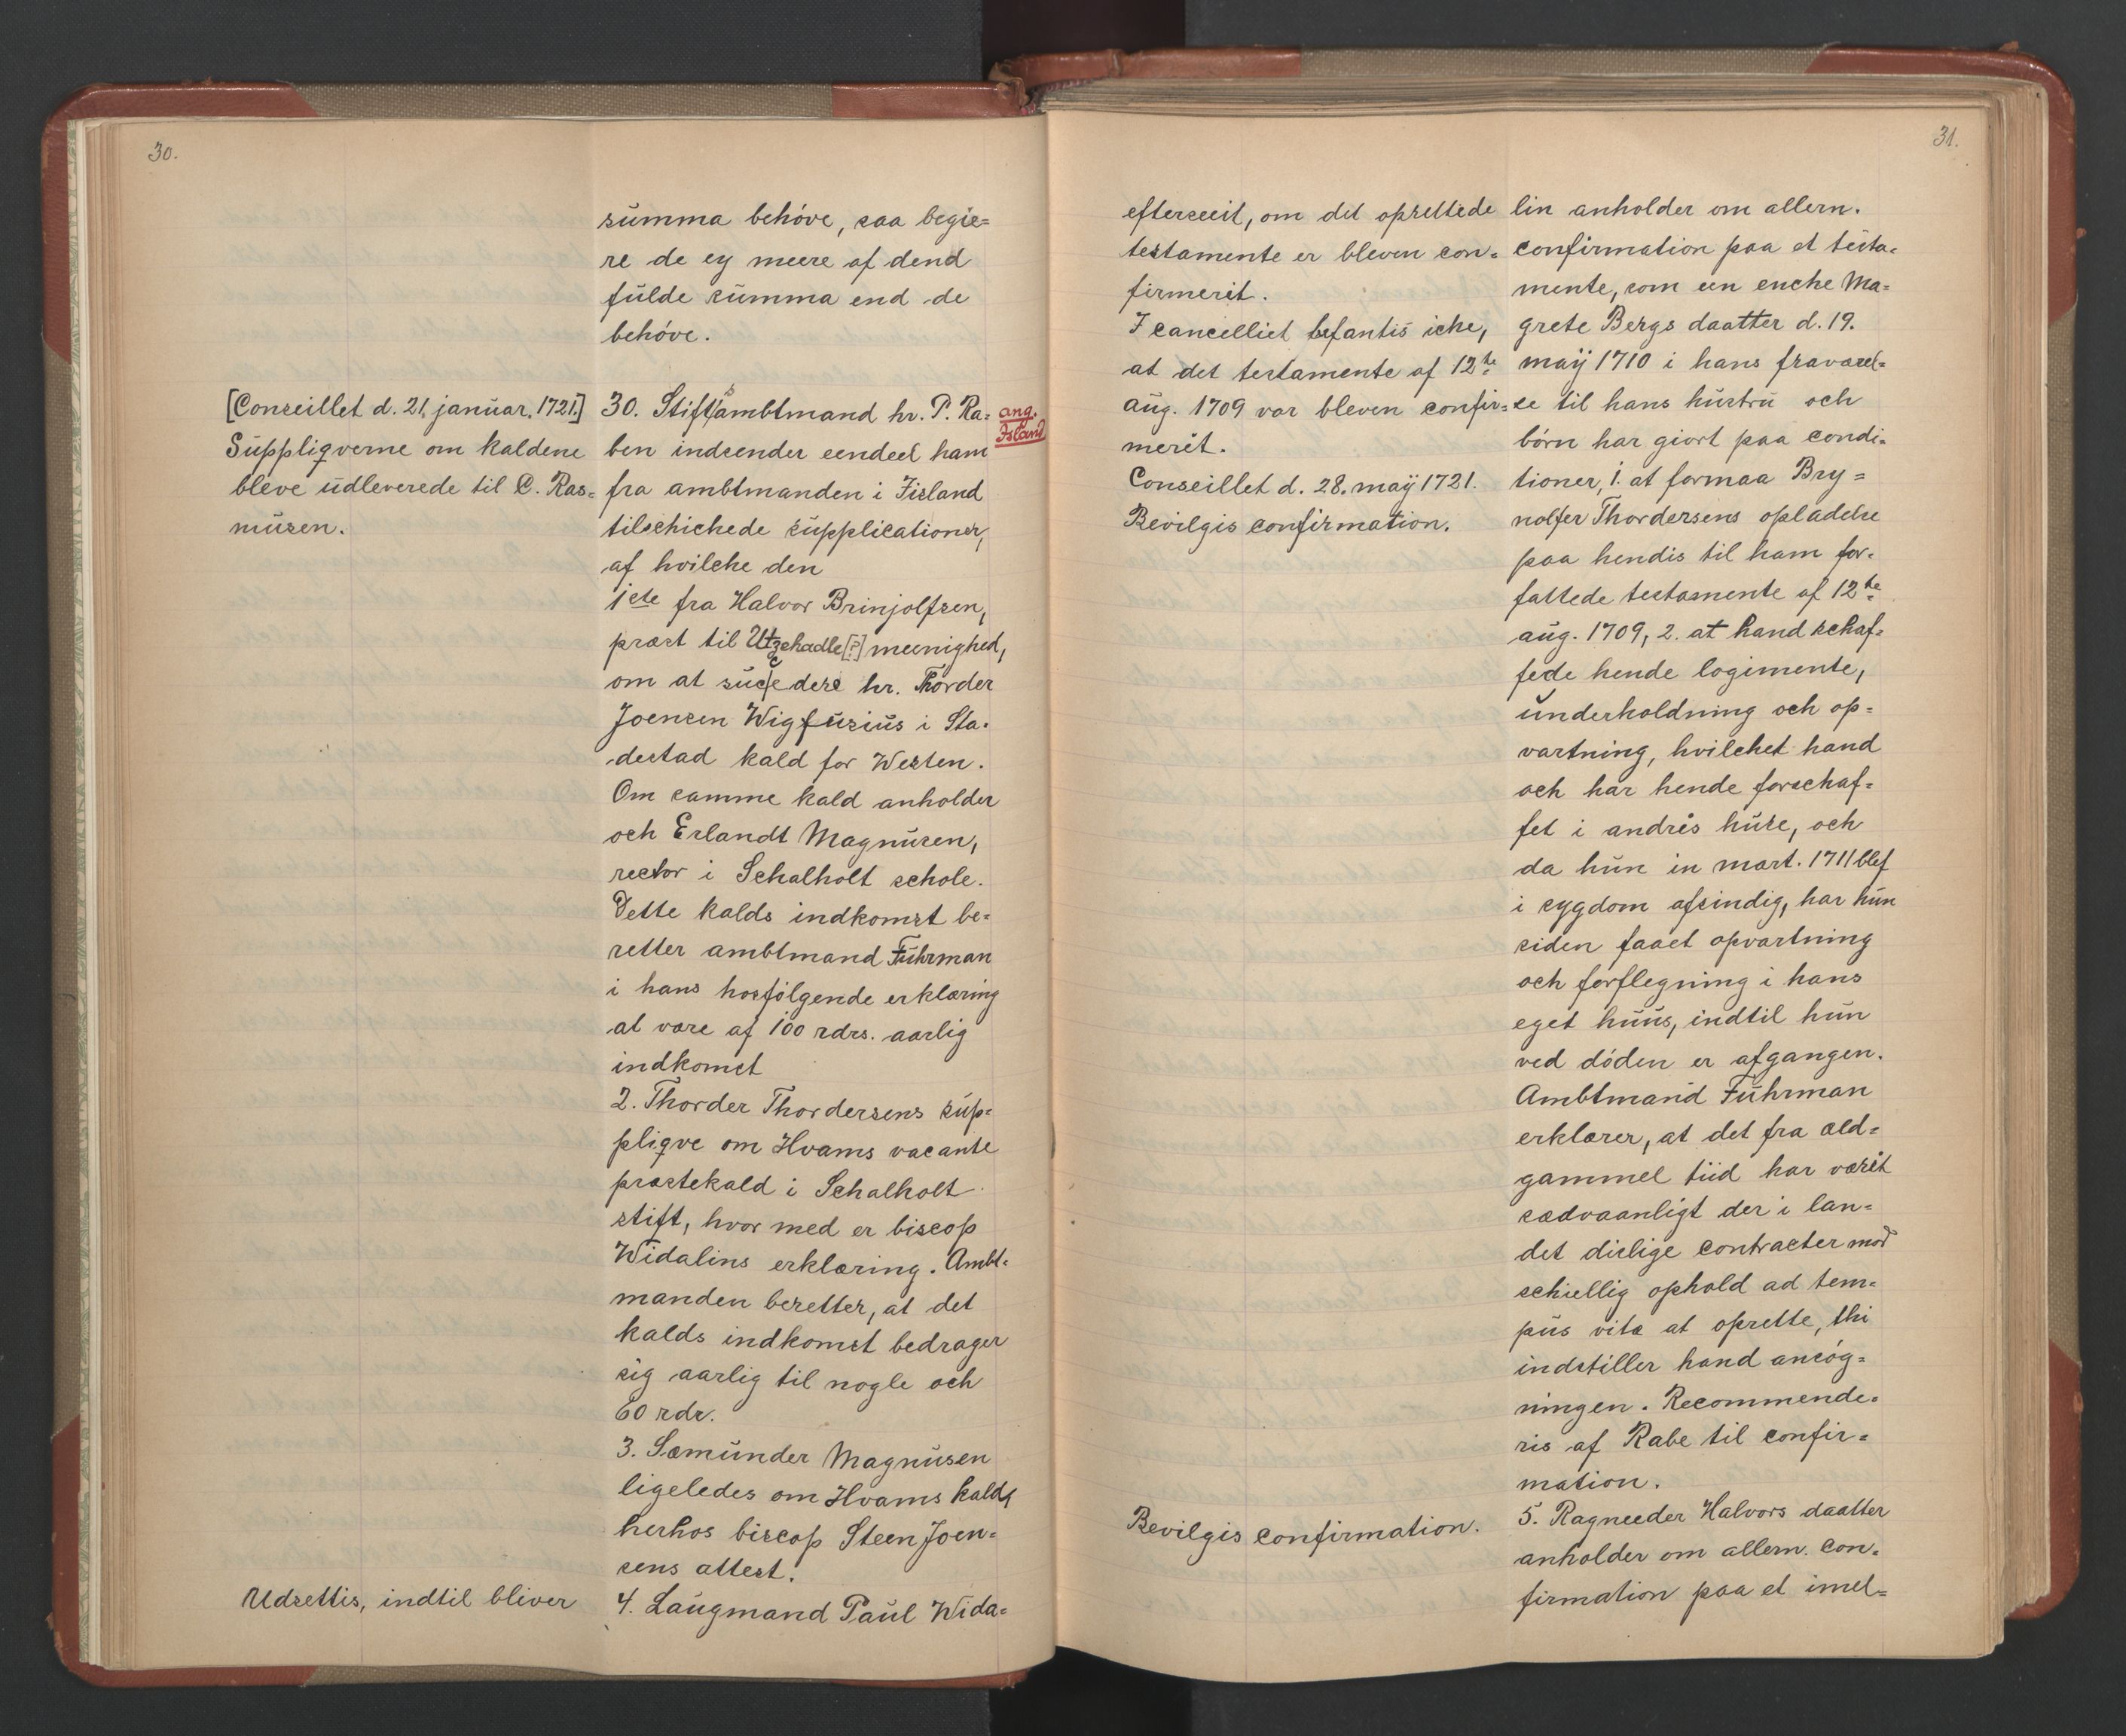 30.
summa behóve, saa begie=
re de ey meere af dend
fulde summa end de
behóve.
[Conseillet d. 21. januar. 1721.]
Suppliqverne om kaldene
bleve udleverede til C. Ras=
musen.
30. Stiftsambtmand hr. P. Ra=
ang.
Island
ben indsender eendeel ham
fra ambtmanden i Jisland
tilschichede supplicationer,
af hvilche den
1ste fra Halvor Brinjolfsen,
præst til Utzchadle[?] meenighed,
om at succedere hr. Thorder
Joensen Wigfusius i Sta=
destad kald for Westen.
Om samme kald anholder
och Erlandt Magnusen,
rector i Schalholt schole.
Dette kalds indkomst be=
retter ambtmand Fuhrman
i hans hosfólgende erklæring
at være af 100 rdrs. aarlig
indkomst
2. Thorder Thordersens sup=
pliqve om Hvams vacante
præstekald i Schalholt
stift, hvor med er biscop
Widalins erklæring. Ambt=
manden beretter, at det
kalds indkomst bedrager
sig aarlig til nogle och
60 rdr.
3. Sæmunder Magnusen
ligeledes om Hvams kald,
herhos biscop Steen Joen=
sens attest.
Udsettis, indtil bliver
4. Laugmand Paul Wida=
31.
efterseeit, om det oprettede
testamente er bleven con=
firmerit.
I cancelliet befantis iche,
at det testamente af 12te
aug. 1709 var bleven confir=
merit.
Conseillet d. 28. maÿ 1721.
Bevilgis confirmation.
lin anholder om allern.
confirmation paa et testa=
mente, som een enche Ma=
grete Bergs daatter d. 19.
maÿ 1710 i hans fraværel=
se til hans hustru och
bórn har giort paa condi=
tioner, 1. at formaa Bry=
nolfer Thordersens opladelse
paa hendis til ham for=
fattede testamente af 12te
aug. 1709, 2. at hand schaf=
fede hende logimente,
underholdning och op=
vartning, hvilchet hand
och har hende forschaf=
fet i andris huse, och
da hun in mart. 1711 blef
i sygdom afsindig, har hun
siden faaet opvartning
och forflegning i hans
eget huus, indtil hun
ved dóden er afgangen.
Ambtmand Fuhrman
erklærer, at det fra æld=
gammel tiid har værit
sædvaanligt der i lan=
det dislige contracter mod
schiellig ophold ad tem=
pus vitæ at oprette, thi
indstiller hand ansóg=
ningen. Recommende=
ris af Rabe til confir=
mation.
Bevilgis confirmation.
5. Ragneeder Halvors daatter
anholder om allern. con=
firmation paa et imel=